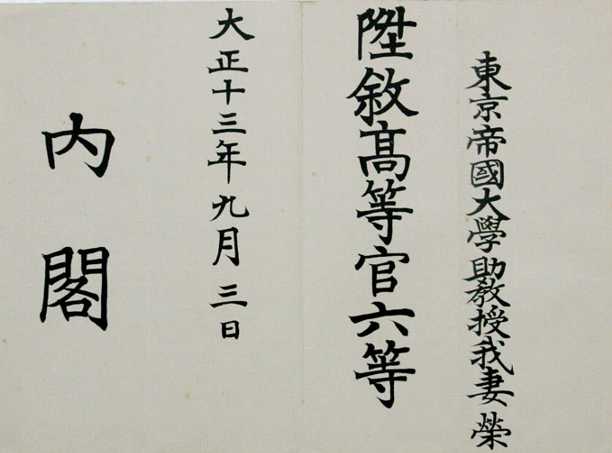 東京帝國大學助教授我妻榮
陞敘高等官六等
大正十三年九月三日
内閣